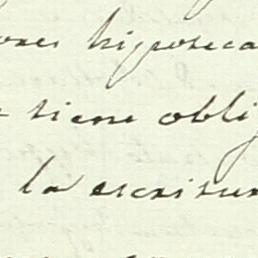 ones hipoteca
tiene obli
la escritur